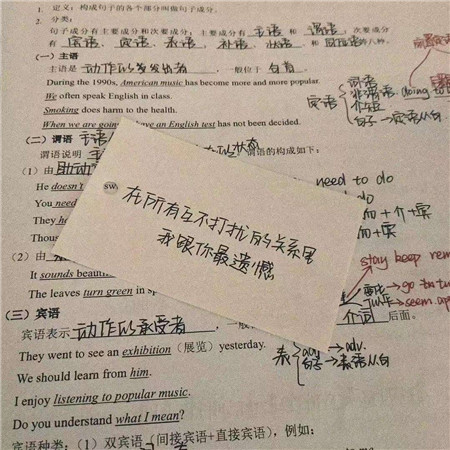 1. 定义：构成句子的各个部分叫做句子成分。
2. 分类：
句子成分有主要成分和次要成分；主要成分有 主语 和 谓语；次要成分
有 宾语、定语、表语、补语、状语 和 同位语的八种。
(一) 主语
主语是 动作的发出者，一般位于 句首。
During the 1990s, American music has become more and more popular.
We often speak English in class.
Smoking does harm to the health.
When we are going have an English test has not been decided.
定语
词语
非谓语 doing to
介短
句子→定语从句
(二) 谓语
谓语说明 主语
状态
谓语的构成如下：
(1) 由 助动
He doesn't
need to do
You need
to do
They
而+介+宾
Thous
而+宾
(2) 由
It sounds beauti
stay keep rem
The leaves turn green in sp
变化→go tu tur
seem app
在所有互不打扰的关系里
我跟你最遗憾
(三) 宾语
宾语表示 动作的承受者，一般
介词 后面。
They went to see an exhibition (展览) yesterday.
表
adv→adv.
句子→表语从句
We should learn from him.
I enjoy listening to popular music.
Do you understand what I mean?
宾语种类：(1) 双宾语（间接宾语+直接宾语），例如：